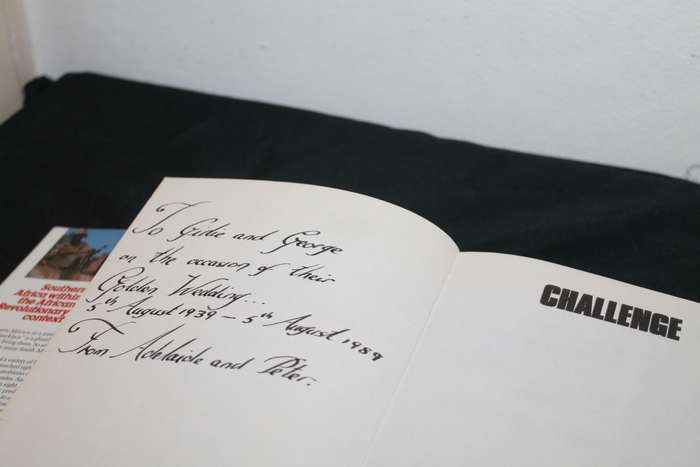 To Girlie and George
on the occasion of their
Golden Wedding...
5th August 1939 – 5th August 1989
From Adelaide and Peter.
CHALLENGE
Southern
Africa within
the African
Revolutionary
context